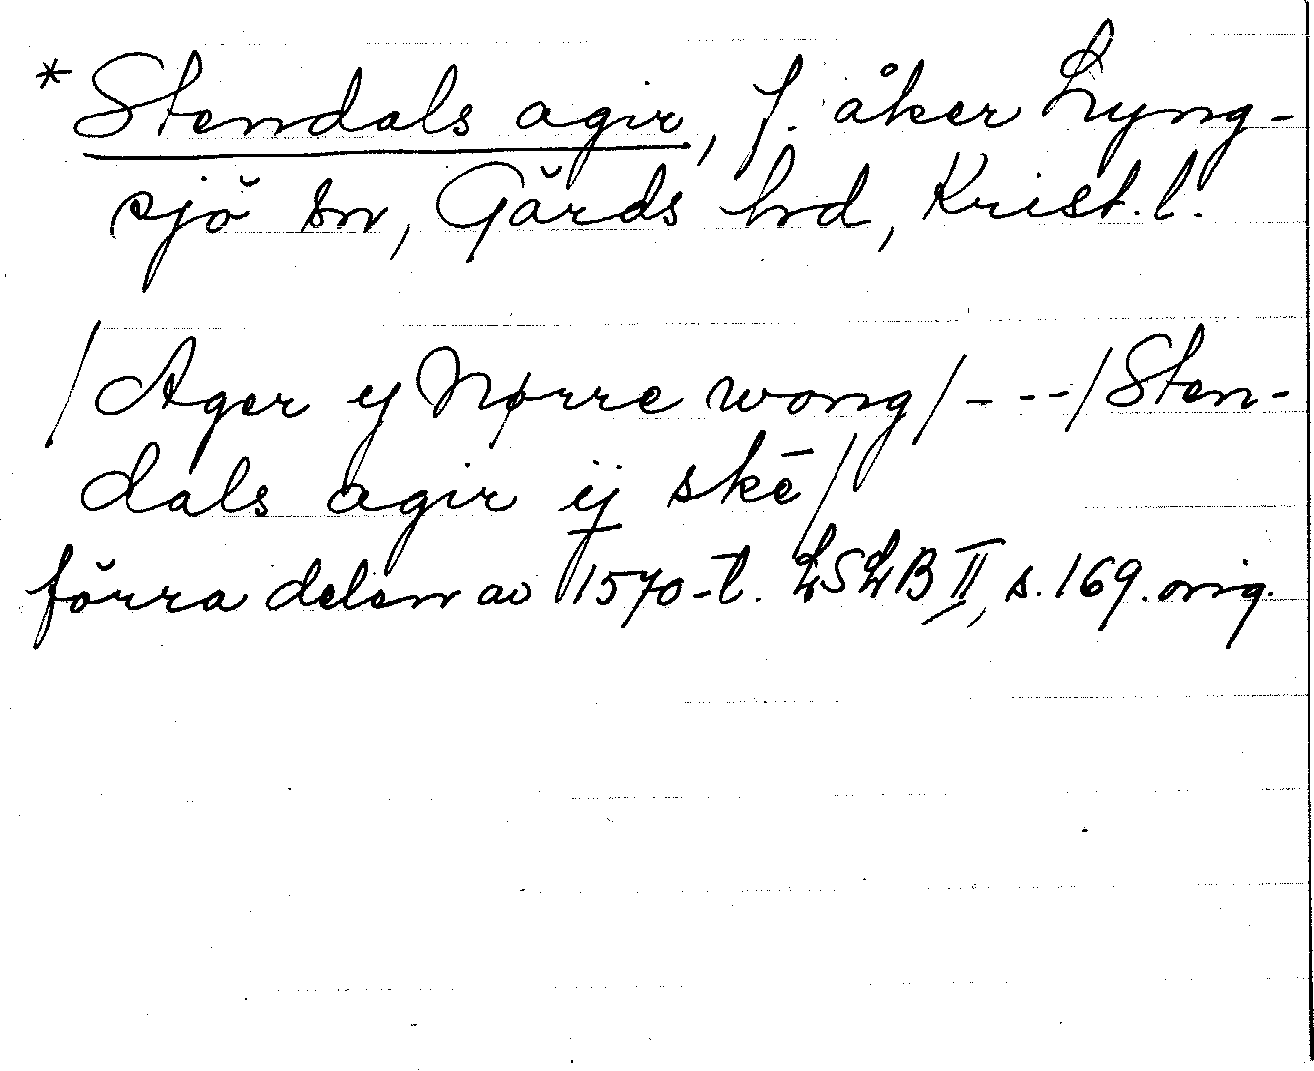 * Stendals agir, f. åker Lyng-
sjö sn, Gärds hd, Krist. l.
/Ager ij Nørre wong/---/Sten-
dals agir ij skē/
förra delen av 1570-t. LSLB II, s. 169. orig.